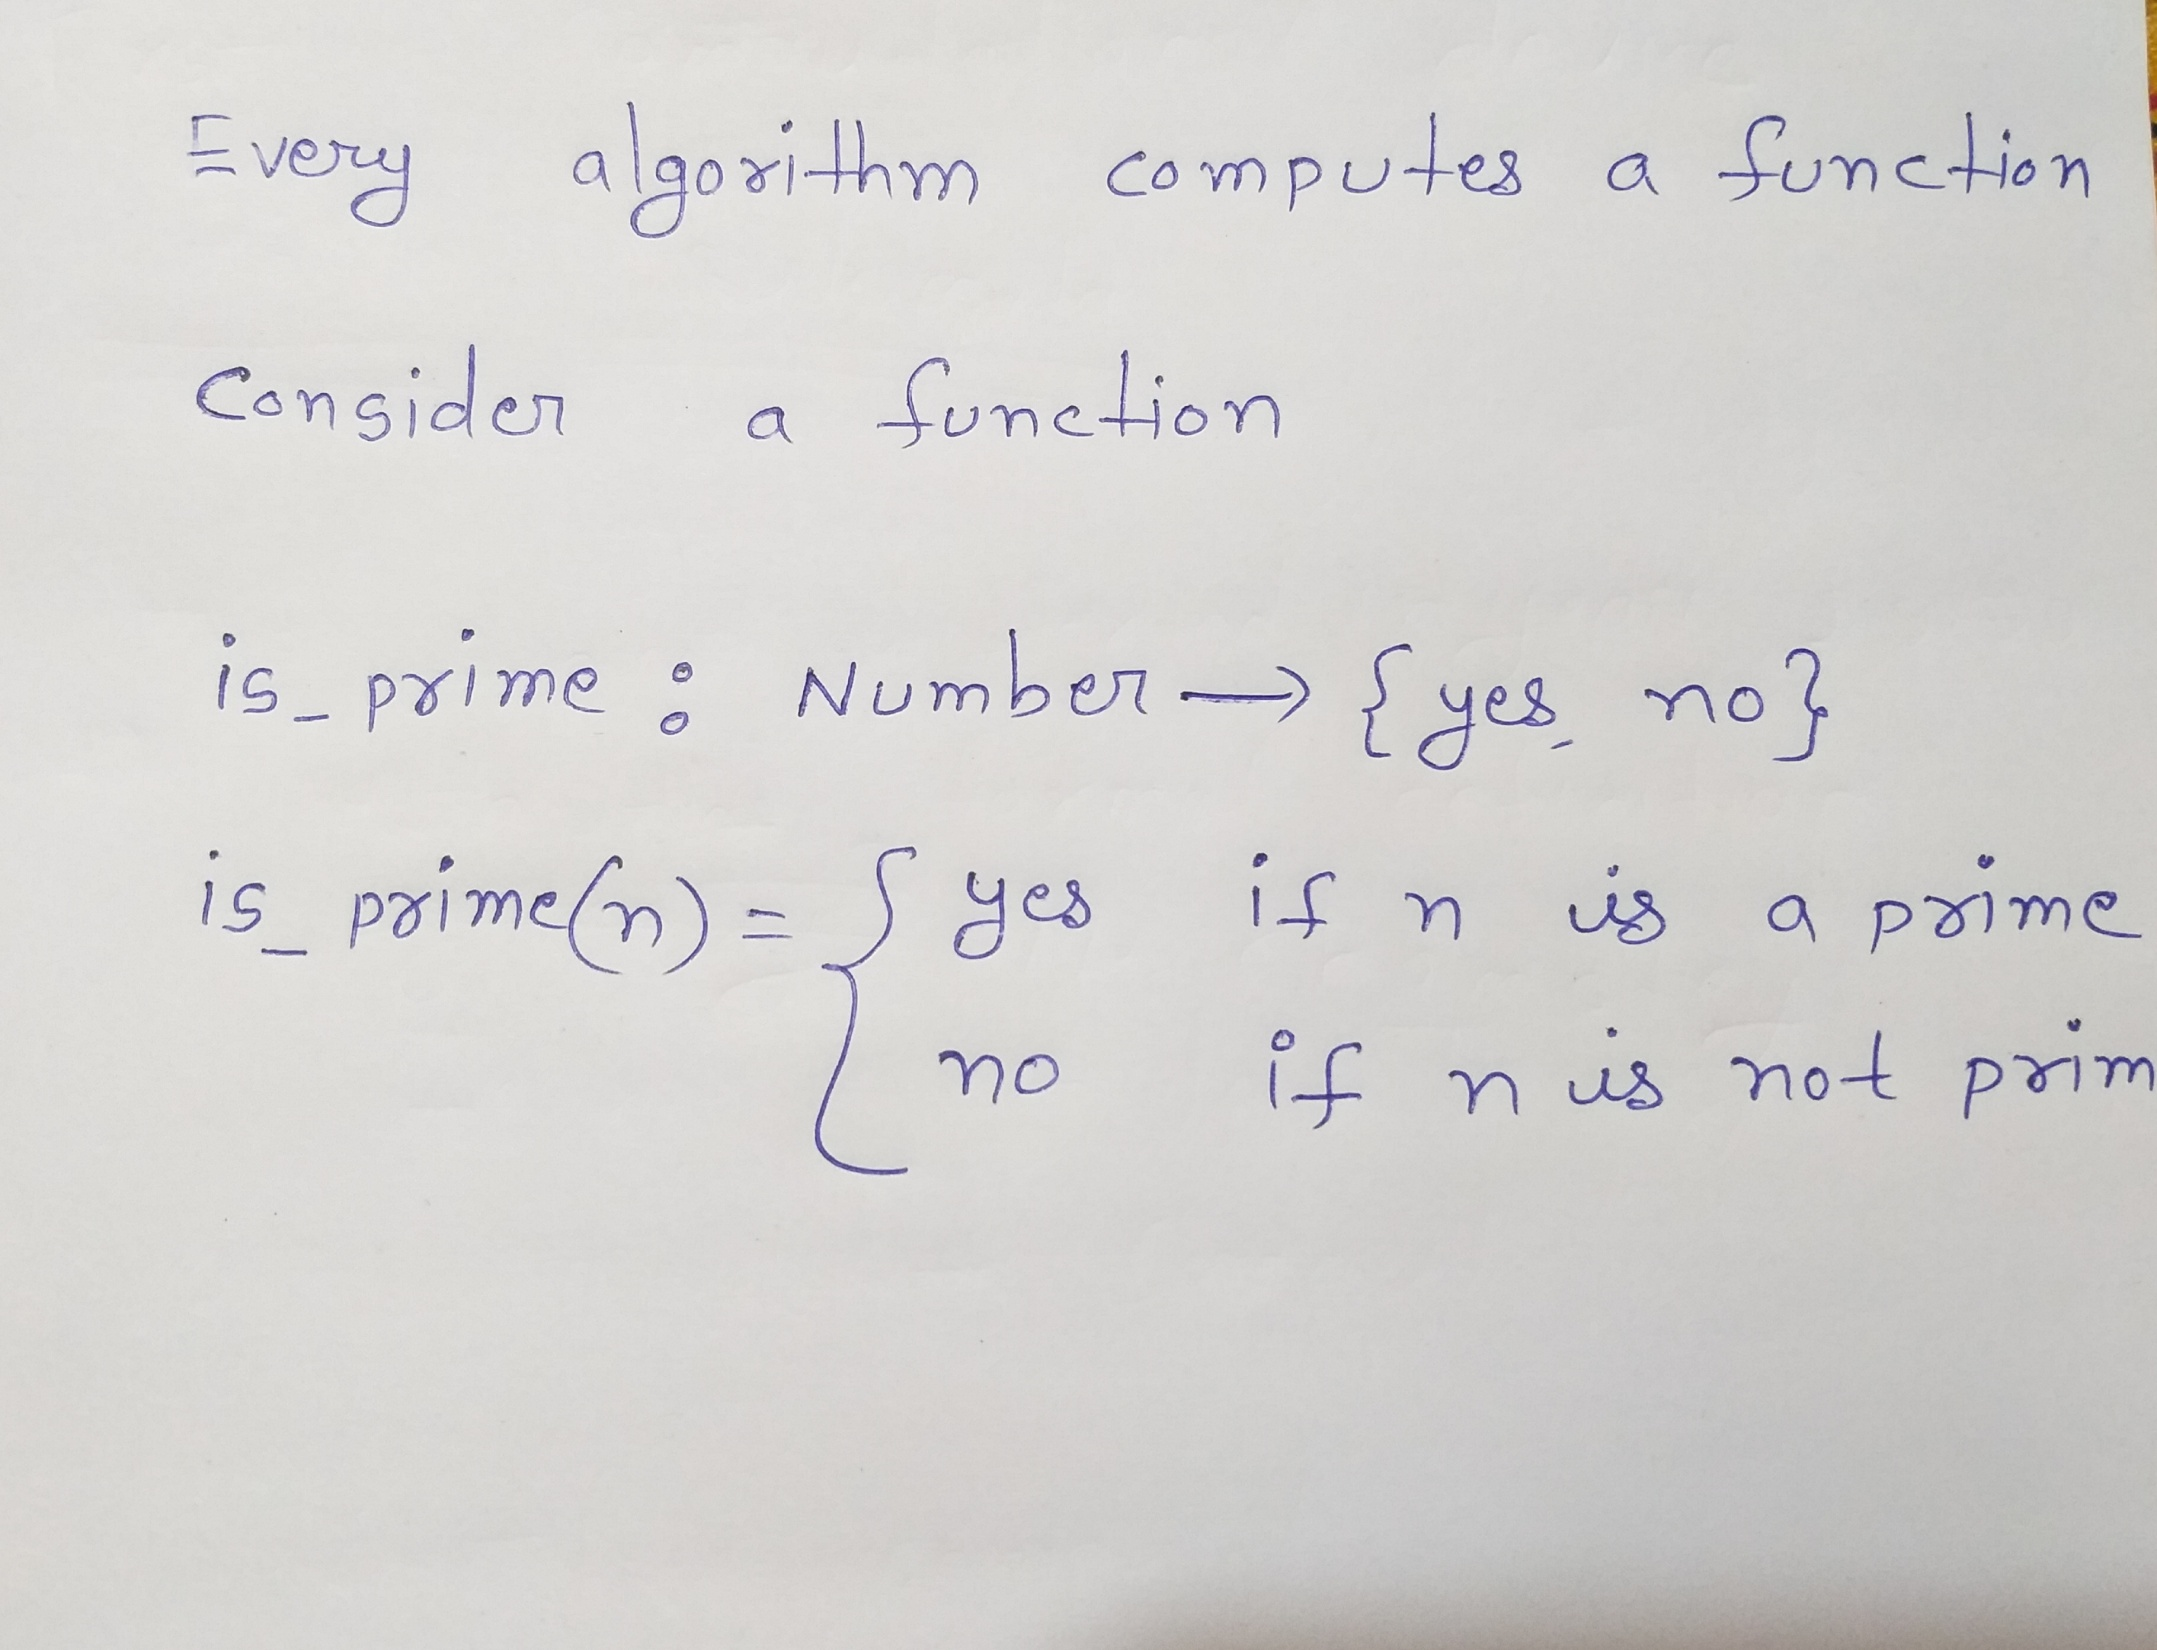 Every algorithm computes a function
Consider a function
is_prime : Number → {yes, no}
is_prime(n) = { yes if n is a prime
no if n is not prim